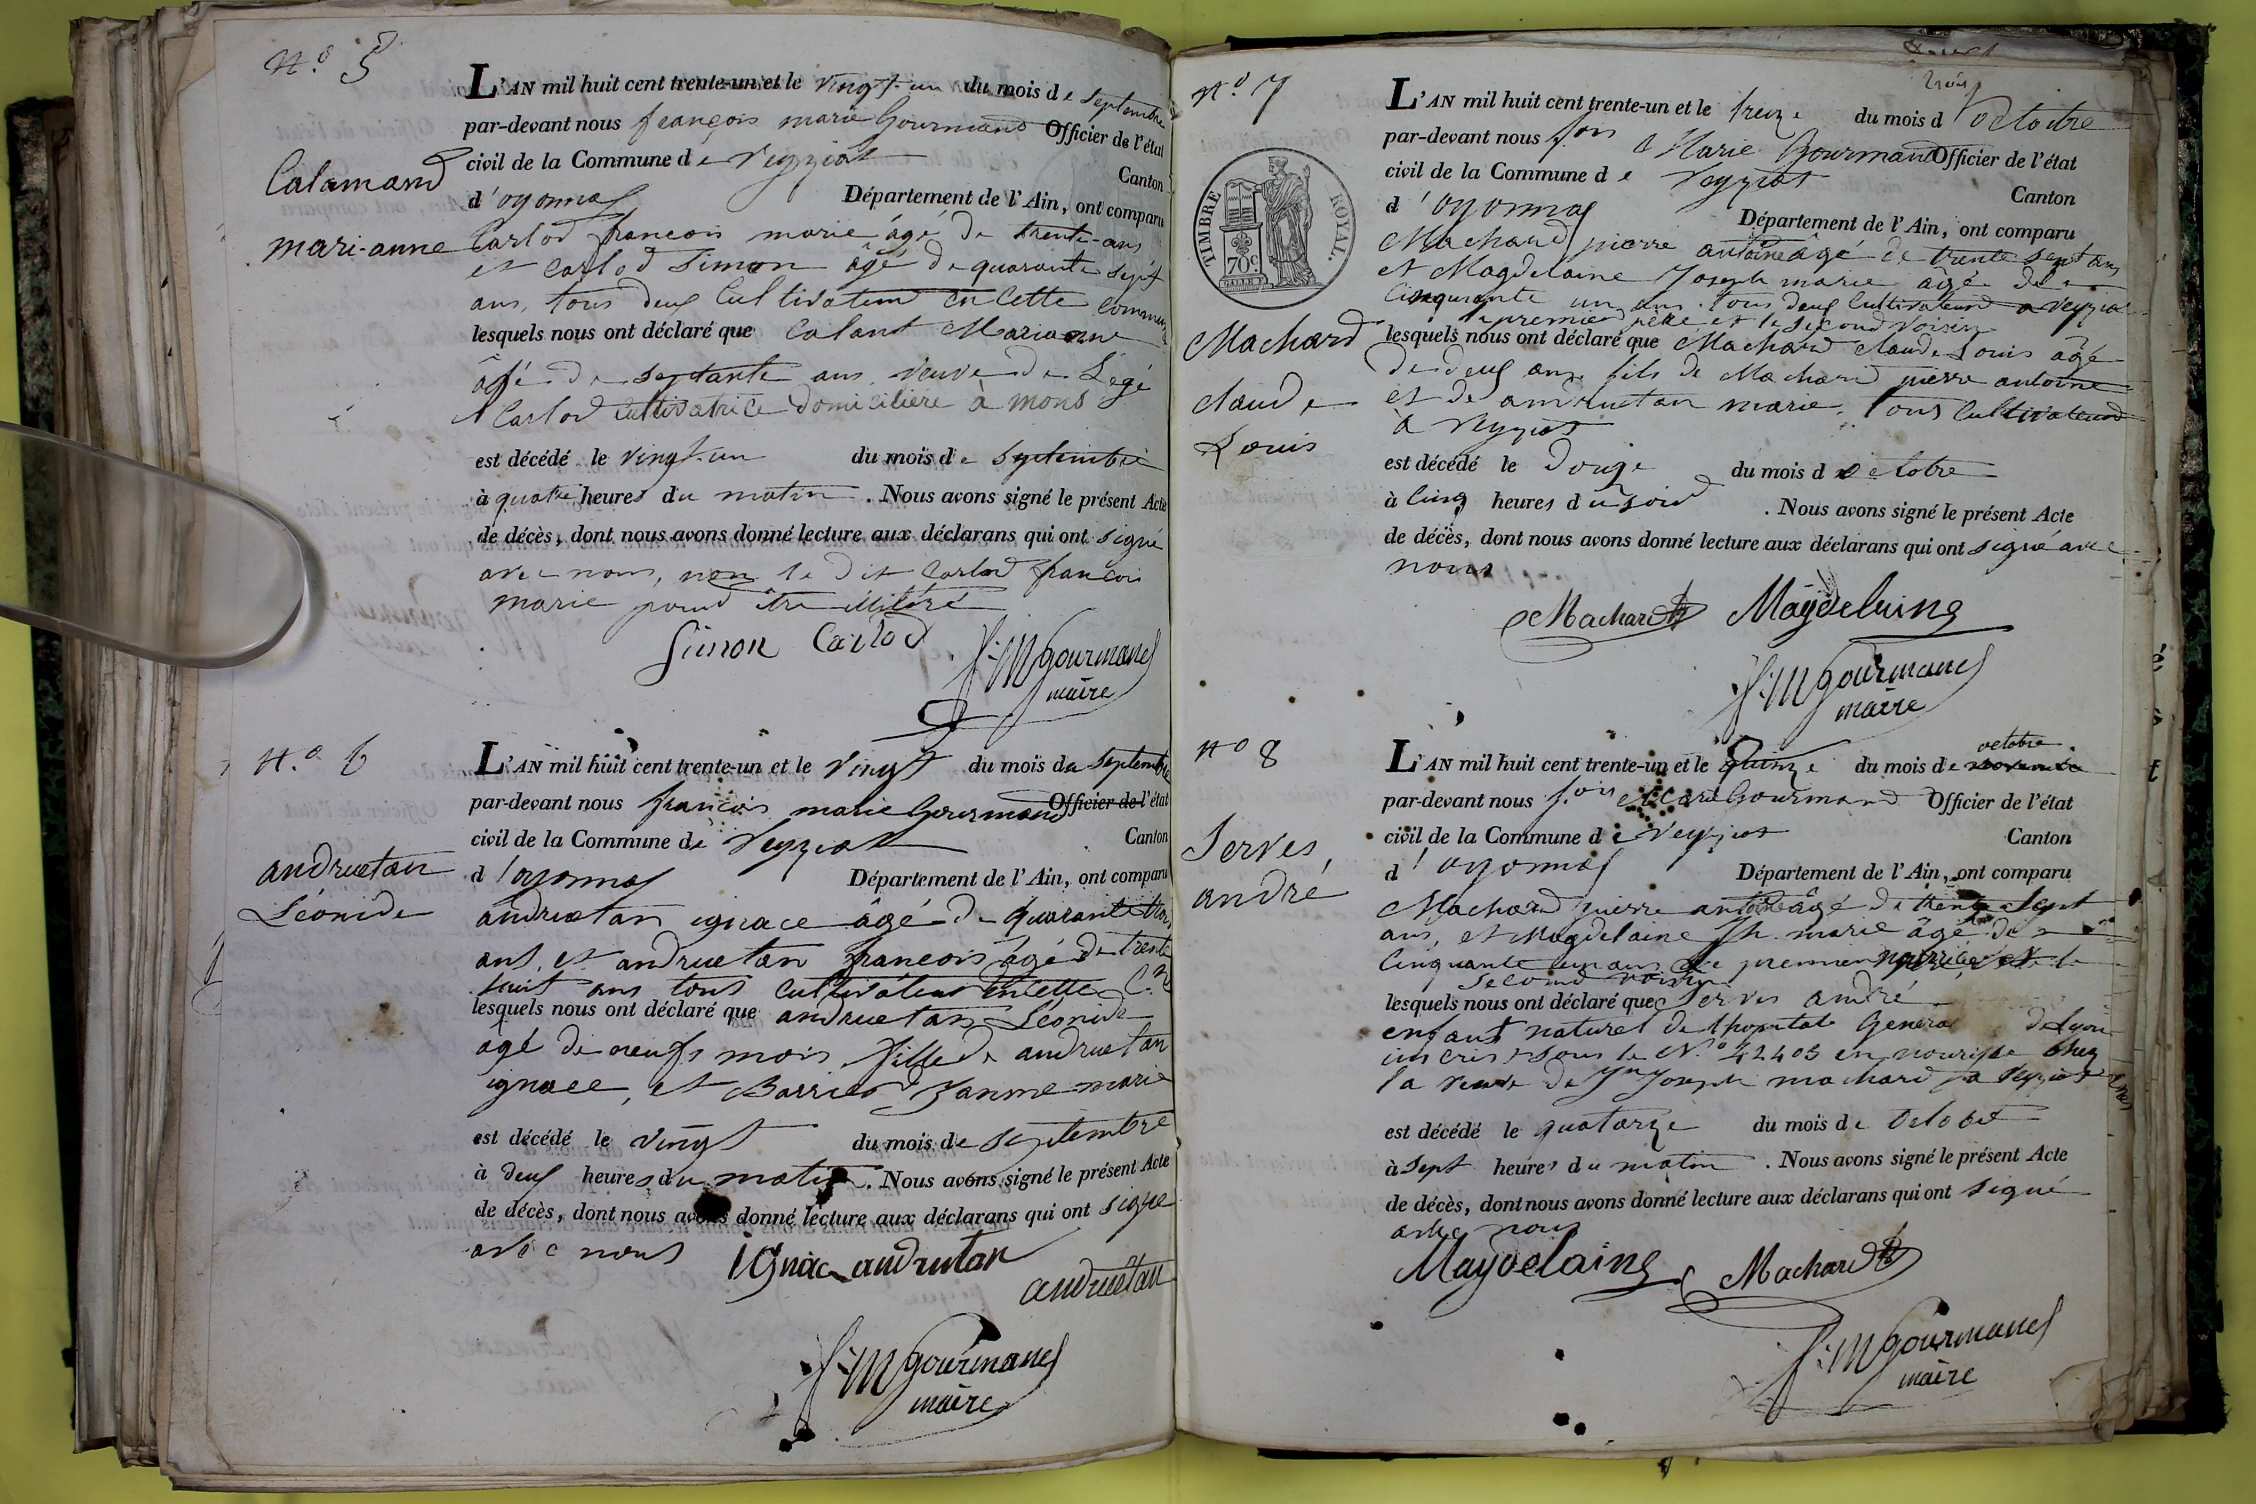 N.º 5
Calamand
mari-anne
L'AN mil huit cent trente-un et le vingt-un du mois de septembre
par-devant nous françois marie Gourmand Officier de l'état
civil de la Commune de Veyziat Canton
d'oyonnax Département de l'Ain, ont comparu
Carlod françois marie âgé de trente-ans
et Carlod Simon âgé de quarante sept
ans, tous deux Cultivateurs en Cette commune
lesquels nous ont déclaré que Calant Marianne
âgé de septante ans, veuve de Legé
Carlod Cultivatrice domiciliere à mons
est décédé le vingt-un du mois de septembre
à quatre heures du matin. Nous avons signé le présent Acte
de décès, dont nous avons donné lecture aux déclarans qui ont signé
avec nous, non le dit Carlod françois
marie pour être illitéré
Simon Carlod
f: M Gourmand
maire
N.º 6
andruetan
Léonide
L'AN mil huit cent trente-un et le vingt du mois de septembre
par-devant nous françois marie Gourmand Officier de l'état
civil de la Commune de Veyziat Canton
d'oyonnax Département de l'Ain, ont comparu
andruetan ignace âgé de quarante trois
ans, et andruetan françois âgé de trente
huit ans tous Cultivateurs en Cette C.ne
lesquels nous ont déclaré que andruetan Léonide
agé de neufs mois fille de andruetan
ignace, et Barrier Janne marie
est décédé le vingt du mois de septembre
à deux heures du matin. Nous avons signé le présent Acte
de décès, dont nous avons donné lecture aux déclarans qui ont signe
avec nous
ignace andrutan
andruetan
f: M Gourmand
maire
N.º 7
TIMBRE ROYAL.
70 c.
Machard
claude
Louis
L'AN mil huit cent trente-un et le treize du mois d'octobre
par-devant nous f.ois Marie Gourmand Officier de l'état
civil de la Commune de Veyziat Canton
d'oyonnax Département de l'Ain, ont comparu
Machard pierre antoine âgé de trente sept ans
et Magdelaine Joseph marie âgé de
Cinquante un ans. tous deux Cultivateurs a Veyziat
le premier père et le second voisin
lesquels nous ont déclaré que Machard claude Louis âgé
de deux ans fils de Machard pierre antoine
et de andruetan marie. tous Cultivateurs
à Veyziat
est décédé le Douze du mois d'octobre
à Cinq heures du soir. Nous avons signé le présent Acte
de décès, dont nous avons donné lecture aux déclarans qui ont signé avec
nous
Machard Magdelaine
f: M Gourmand
maire
Nº 8
Serves,
andré
octobre
L'AN mil huit cent trente-un et le Quinze du mois de
par-devant nous f.ois Marie Gourmand Officier de l'état
civil de la Commune de Veyziat Canton
d'oyonnax Département de l'Ain, ont comparu
Machard pierre antoine âgé de trente sept
ans, et Magdelaine Jh marie âgé de
Cinquante un ans le premier nourricier et le
second voisin
lesquels nous ont déclaré que Serves andré
enfant naturel de l'hopitale General de Lyon
inscrit sous le N.º 42403 en nourisse chez
la veuve de Joseph machard a Veyziat
est décédé le quatorze du mois de Octobre
à sept heures du matin. Nous avons signé le présent Acte
de décès, dont nous avons donné lecture aux déclarans qui ont signé
avec nous
Magdelaine Machard
f: M Gourmand
maire